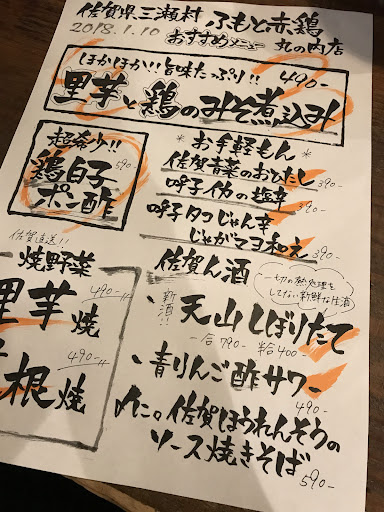 佐賀県三瀬村 ふもと赤鶏
2018.1.10 おすすめメニュー 丸の内店
ほかほか!!旨味たっぷり!! 490-
里芋と鶏のみそ煮込み
超希少!!
鶏白子 590-
ポン酢
*お手軽もん*
佐賀青菜のおひたし 390-
呼子イカの塩辛 390-
呼子タコじゃん辛
じゃがマヨ和え 390-
佐賀直送!!
焼野菜
里芋焼 490-
根焼 490-
佐賀ん酒
一切の熱処理を
してない新鮮な生酒
新酒!!
・天山しぼりたて
一合790- 
400-
・青りんご酢サワー
490-
〆に。佐賀ほうれんそうの
ソース焼きそば 590-